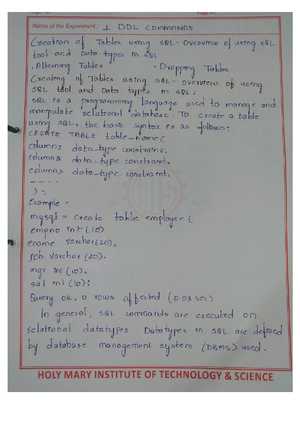 Name of the Experiment: 1 DDL COMMANDS
Creation of Tables using SQL- Overview of using SQL
tool and Data types in SQL
• Altering Tables • Dropping Tables
Creating of Tables using SQL- Overview of using
SQL tool and Data types in SQL:
SQL is a programming language used to manage and
manipulate relational database. To create a table
using SQL, the basic syntax is as follows:
CREATE TABLE table_name(
column1 data_type constraint,
column2 data_type constraint,
column3 data_type constraint,
- - - - -
);
Example -
mysql> create table employee (
empno int (10)
ename varchar(20),
job varchar (20).
mgr int (10),
sal int (10);
Query ok, 0 rows affected (0.03 sec)
In general, SQL commands are executed on
relational datatypes Datatypes in SQL are defined
by database management system (DBMS) used.
HOLY MARY INSTITUTE OF TECHNOLOGY & SCIENCE